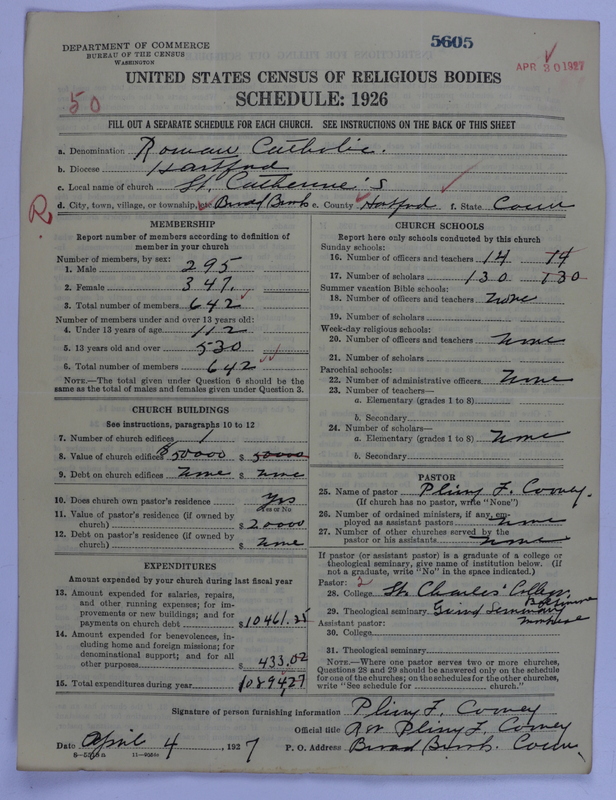 DEPARTMENT OF COMMERCE
BUREAU OF THE CENSUS
WASHINGTON
5605
APR 30 1927
50
UNITED STATES CENSUS OF RELIGIOUS BODIES
SCHEDULE: 1926
FILL OUT A SEPARATE SCHEDULE FOR EACH CHURCH. SEE INSTRUCTIONS ON THE BACK OF THIS SHEET
a. Denomination Roman Catholic.
b. Diocese Hartford
c. Local name of church St. Catherine's
d. City, town, village, or township, etc. Broad Brook e. County Hartford f. State Conn
R
MEMBERSHIP
Report number of members according to definition of
member in your church
Number of members, by sex:
1. Male 295
2. Female 347.
3. Total number of members 642
Number of members under and over 13 years old:
4. Under 13 years of age 112
5. 13 years old and over 530
6. Total number of members 642
NOTE.—The total given under Question 6 should be the
same as the total of males and females given under Question 3.
CHURCH BUILDINGS
See instructions, paragraphs 10 to 12
7. Number of church edifices 1
8. Value of church edifices $50000 $ 50000
9. Debt on church edifices None $ None
10. Does church own pastor's residence Yes
Yes or No
11. Value of pastor's residence (if owned by
church) $20000
12. Debt on pastor's residence (if owned by
church) $ None
EXPENDITURES
Amount expended by your church during last fiscal year
13. Amount expended for salaries, repairs,
and other running expenses; for im-
provements or new buildings; and for
payments on church debt $10461.25
14. Amount expended for benevolences, in-
cluding home and foreign missions; for
denominational support; and for all
other purposes 433.02
15. Total expenditures during year 10894.27
CHURCH SCHOOLS
Report here only schools conducted by this church
Sunday schools:
16. Number of officers and teachers 14 14
17. Number of scholars 130 130
Summer vacation Bible schools:
18. Number of officers and teachers None
19. Number of scholars
Week-day religious schools:
20. Number of officers and teachers None
21. Number of scholars
Parochial schools:
22. Number of administrative officers None
23. Number of teachers—
a. Elementary (grades 1 to 8)
b. Secondary
24. Number of scholars—
a. Elementary (grades 1 to 8) None
b. Secondary
PASTOR
25. Name of pastor Pliny F. Cooney.
(If church has no pastor, write "None")
26. Number of ordained ministers, if any, em-
ployed as assistant pastors None
27. Number of other churches served by the
pastor or his assistants None
If pastor (or assistant pastor) is a graduate of a college or
theological seminary, give name of institution below. (If
not a graduate, write "No" in the space indicated.)
Pastor: 2
28. College St. Charles' College,
Baltimore
29. Theological seminary Grand Seminary
Montreal
Assistant pastor:
30. College
31. Theological seminary
NOTE.—Where one pastor serves two or more churches,
Questions 28 and 29 should be answered only on the schedule
for one of the churches; on the schedules for the other churches,
write "See schedule for church."
Signature of person furnishing information Pliny F. Cooney
Official title Rev Pliny F. Cooney
Date April 4, 1927 P. O. Address Broad Brook. Conn